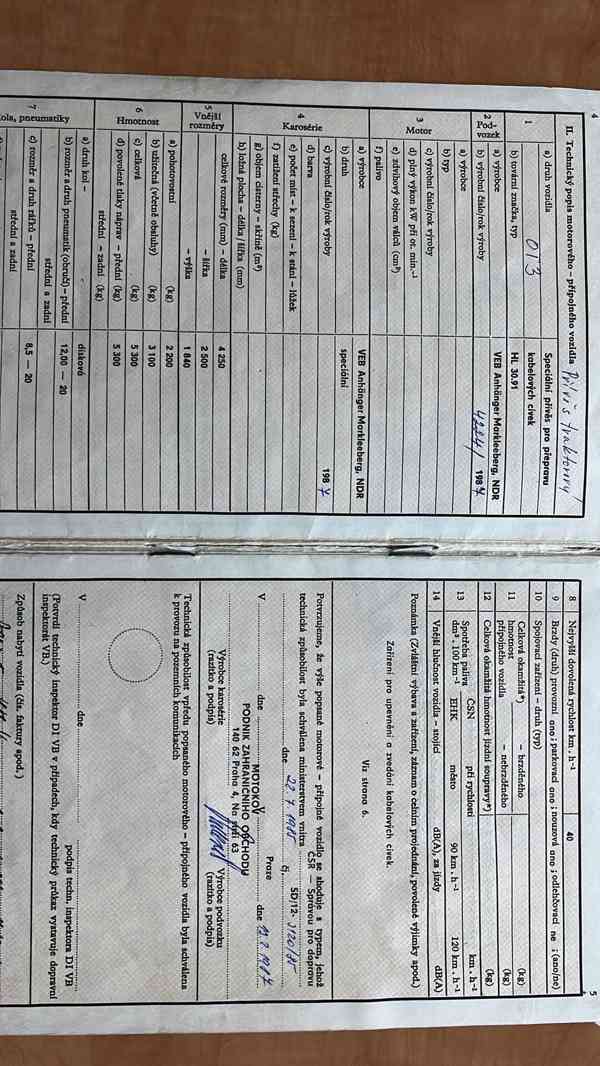 4
II. Technický popis motorového – přípojného vozidla Přívěs traktorový
1
a) druh vozidla
Speciální přívěs pro přepravu
013
kabelových cívek
b) tovární značka, typ
HL 30.91
2
Pod-
vozek
a) výrobce
VEB Anhänger Markleeberg, NDR
b) výrobní číslo/rok výroby
198 7
3
Motor
a) výrobce
b) typ
c) výrobní číslo/rok výroby
d) plný výkon kW při ot. min.⁻¹
e) zdvihový objem válců (cm³)
f) palivo
4
Karosérie
a) výrobce
VEB Anhänger Markleeberg, NDR
b) druh
speciální
c) výrobní číslo/rok výroby
198 7
d) barva
e) počet míst – k sezení – k stání – lůžek
f) zatížení střechy (kg)
g) objem cisterny – skříně (m³)
h) ložná plocha – délka/šířka (mm)
5
Vnější
rozměry
celkové rozměry (mm) – délka
4 250
– šířka
2 500
– výška
1 840
6
Hmotnost
a) pohotovostní (kg)
2 200
b) užitečná (včetně obsluhy) (kg)
3 100
c) celková (kg)
5 300
d) povolené tlaky náprav – přední (kg)
5 300
střední – zadní (kg)
7
Kola, pneumatiky
a) druh kol –
disková
b) rozměr a druh pneumatik (obručí) – přední
střední a zadní
12,00 — 20
c) rozměr a druh ráfků – přední
střední a zadní
8,5 — 20
5
8
Nejvyšší dovolená rychlost km . h⁻¹
40
9
Brzdy (druh) provozní ano ; parkovací ano ; nouzová ano ; odlehčovací ne ; (ano/ne)
10
Spojovací zařízení – druh (typ)
11
Celková okamžitá*)
hmotnost
přípojného vozidla
– brzděného (kg)
– nebrzděného (kg)
12
Celková okamžitá hmotnost jízdní soupravy*) (kg)
13
Spotřeba paliva ČSN při rychlosti km . h⁻¹
dm³ . 100 km⁻¹ EHK město 90 km . h⁻¹ 120 km . h⁻¹
14
Vnější hlučnost vozidla – stojící dB(A), za jízdy dB(A)
Poznámka (Zvláštní výbava a zařízení, záznam o celním projednání, povolené výjimky apod.)
Zařízení pro upevnění a zvedání kabelových cívek.
Viz strana 6.
Potvrzujeme, že výše popsané motorové – přípojné vozidlo se shoduje s typem, jehož
technická způsobilost byla schválena ministerstvem vnitra ČSR — Správou pro dopravu
dne 22.7.1985 čj. SD/12- 3120/85
V Praze dne
MOTOKOV
PODNIK ZAHRANIČNÍHO OBCHODU
140 62 Praha 4, Na
63
Výrobce karosérie
(razítko a podpis)
Výrobce podvozku
(razítko a podpis)
Technická způsobilost vpředu popsaného motorového – přípojného vozidla byla schválena
k provozu na pozemních komunikacích
V dne
podpis techn. inspektora DI VB
(Potvrdí technický inspektor DI VB v případech, kdy technický průkaz vystavuje dopravní
inspektorát VB.)
Způsob nabytí vozidla (čís. faktury apod.)